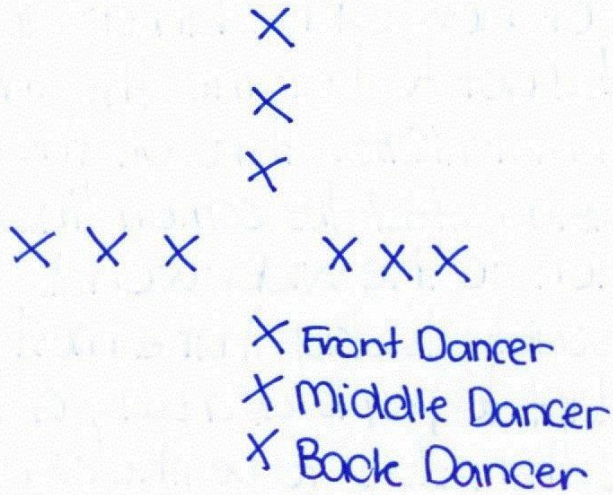 X
X
X
X X X X X X
X Front Dancer
X Middle Dancer
X Back Dancer